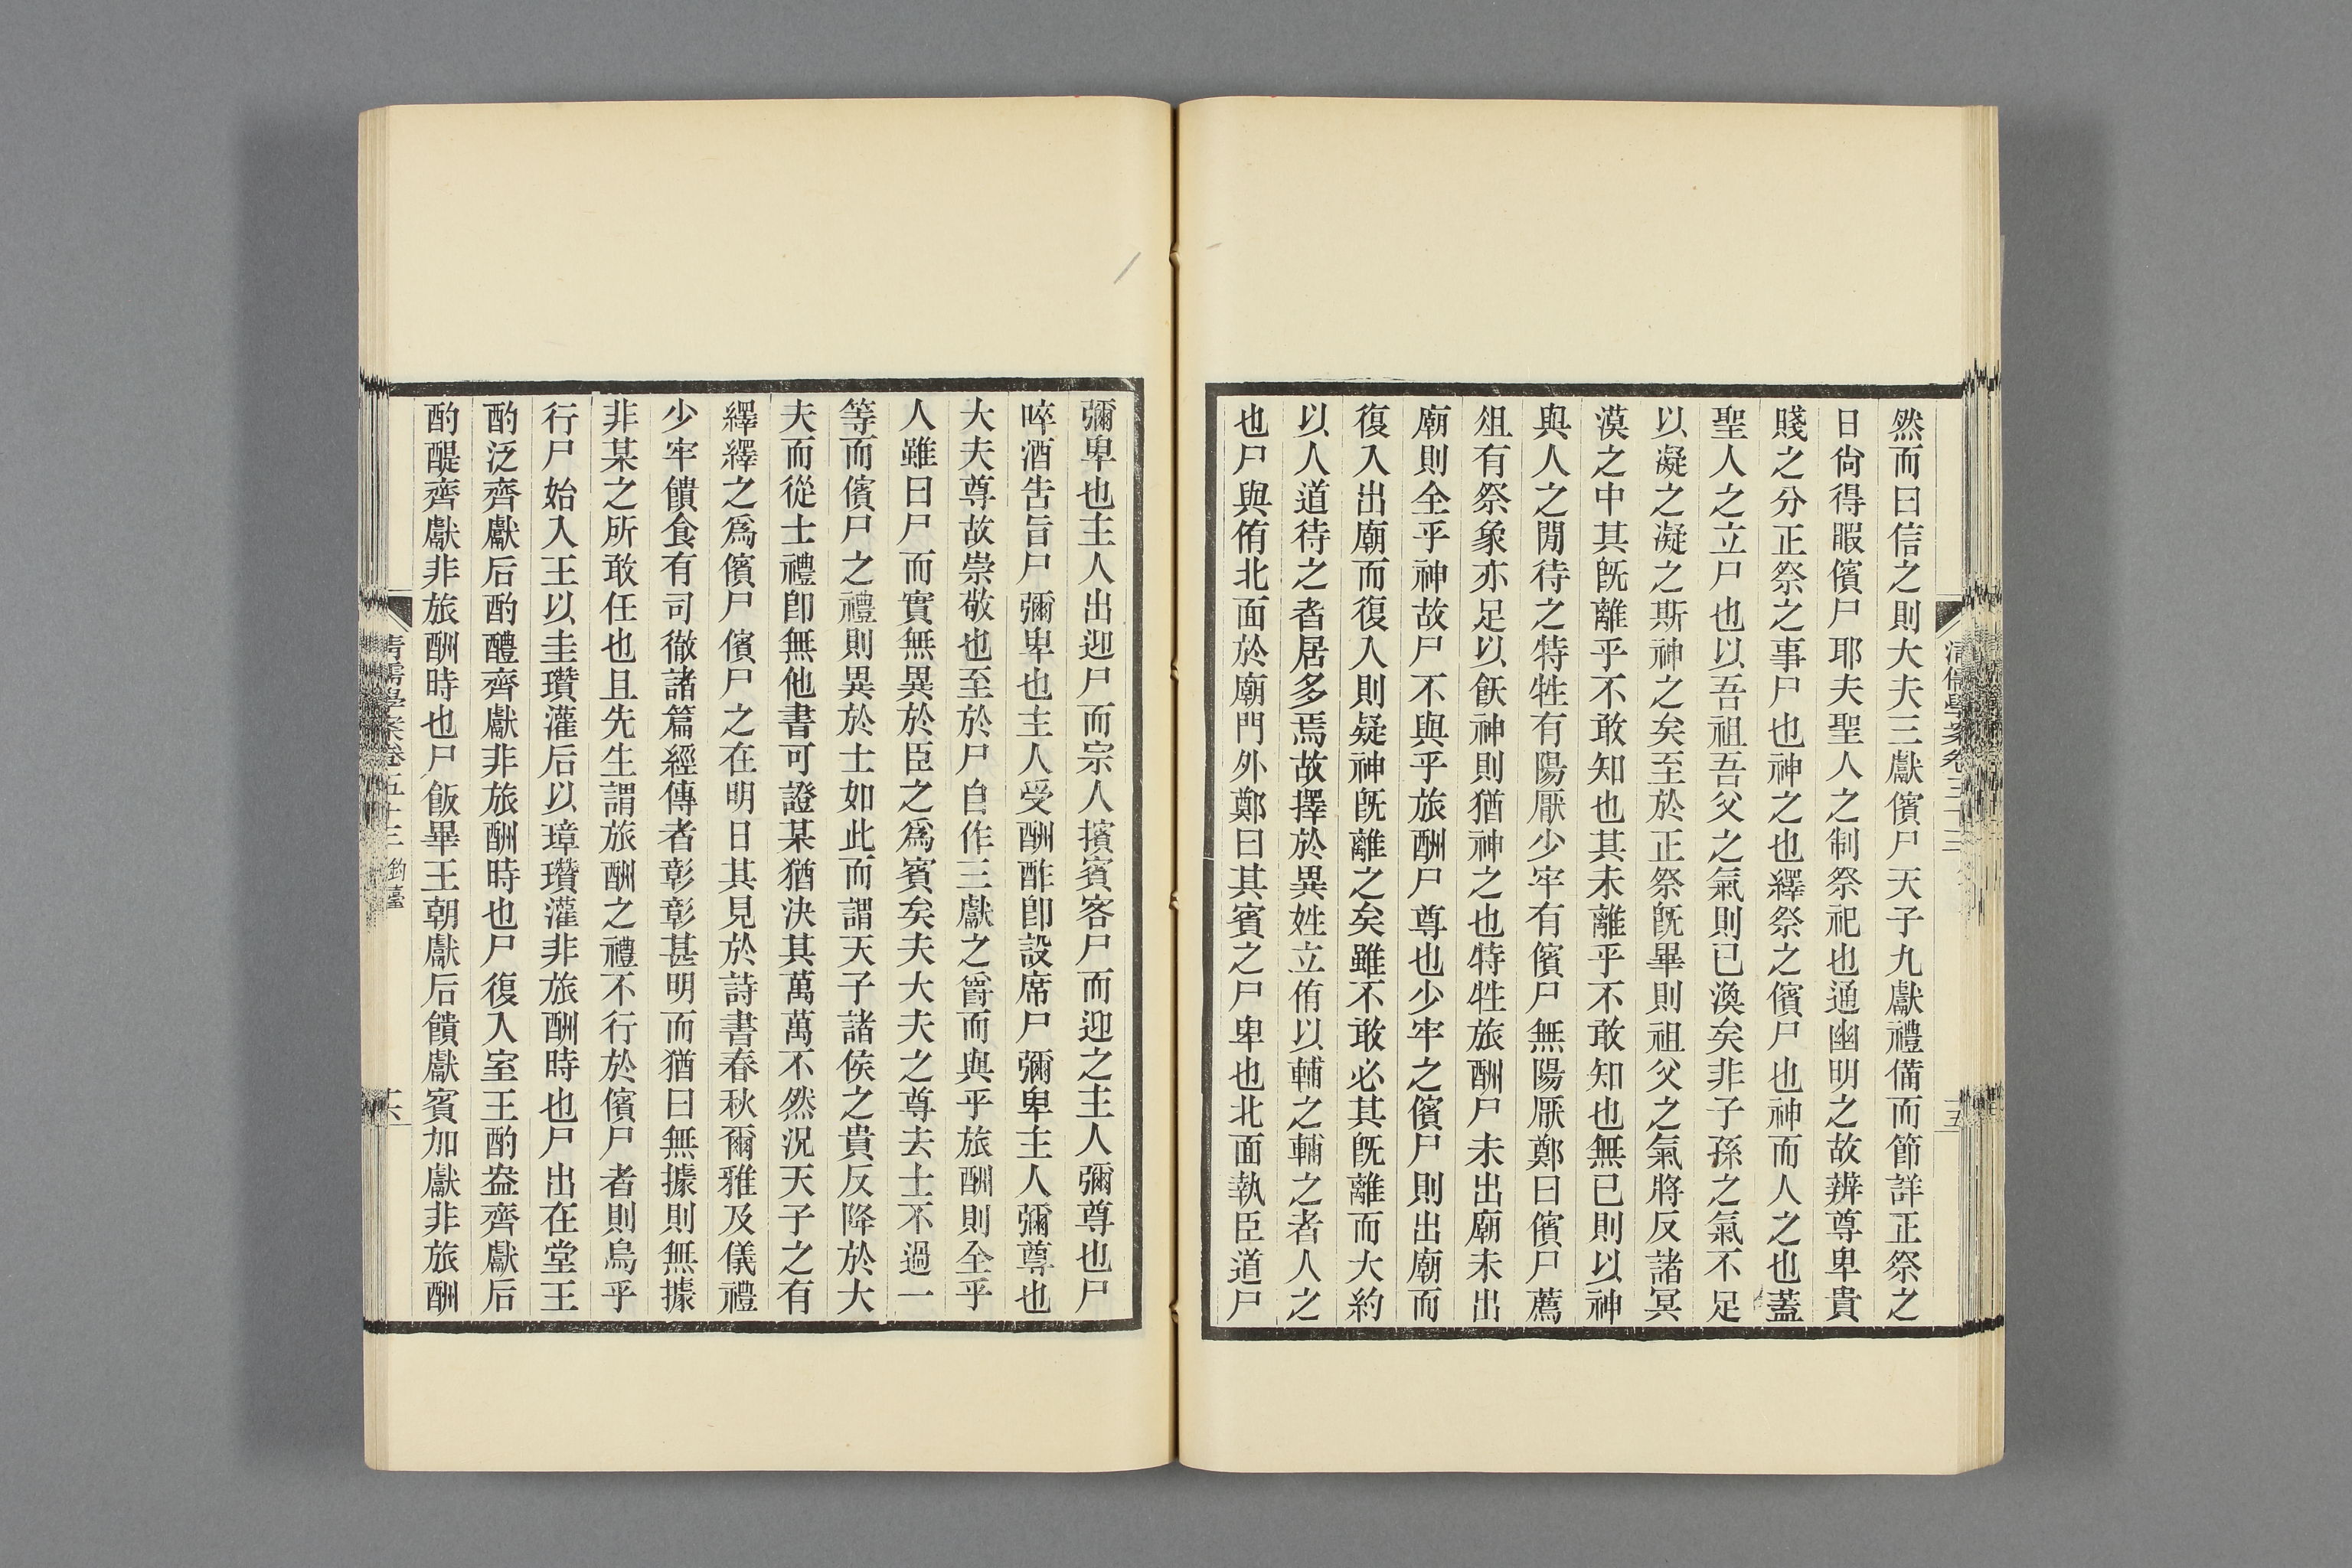 然而曰信之則大夫三獻儐尸天子九獻禮備而節詳正祭之
日尙得暇儐尸耶夫聖人之制祭祀也通幽明之故辨尊卑貴
賤之分正祭之事尸也神之也繹祭之儐尸也神而人之也蓋
聖人之立尸也以吾祖吾父之氣則已渙矣非子孫之氣不足
以凝之凝之斯神之矣至於正祭旣畢則祖父之氣將反諸冥
漠之中其旣離乎不敢知也其未離乎不敢知也無已則以神
與人之閒待之特牲有陽厭少牢有儐尸無陽厭鄭曰儐尸薦
俎有祭象亦足以飫神則猶神之也特牲旅酬尸未出廟未出
廟則全乎神故尸不與乎旅酬尸尊也少牢之儐尸則出廟而
復入出廟而復入則疑神旣離之矣雖不敢必其旣離而大約
以人道待之者居多焉故擇於異姓立侑以輔之輔之者人之
也尸與侑北面於廟門外鄭曰其賓之尸卑也北面執臣道尸
彌卑也主人出迎尸而宗人擯賓客尸而迎之主人彌尊也尸
啐酒告旨尸彌卑也主人受酬酢卽設席尸彌卑主人彌尊也
大夫尊故崇敬也至於尸自作三獻之爵而與乎旅酬則全乎
人雖曰尸而實無異於臣之爲賓矣夫大夫之尊去士不過一
等而儐尸之禮則異於士如此而謂天子諸侯之貴反降於大
夫而從士禮卽無他書可證某猶決其萬萬不然況天子之有
繹繹之爲儐尸儐尸之在明日其見於詩書春秋爾雅及儀禮
少牢饋食有司徹諸篇經傳者彰彰甚明而猶曰無據則無據
非某之所敢任也且先生謂旅酬之禮不行於儐尸者則烏乎
行尸始入王以圭瓚灌后以璋瓚灌非旅酬時也尸出在堂王
酌泛齊獻后酌醴齊獻非旅酬時也尸復入室王酌盎齊獻后
酌醍齊獻非旅酬時也尸飯畢王朝獻后饋獻賓加獻非旅酬
淸儒學案卷五十三 鈞臺